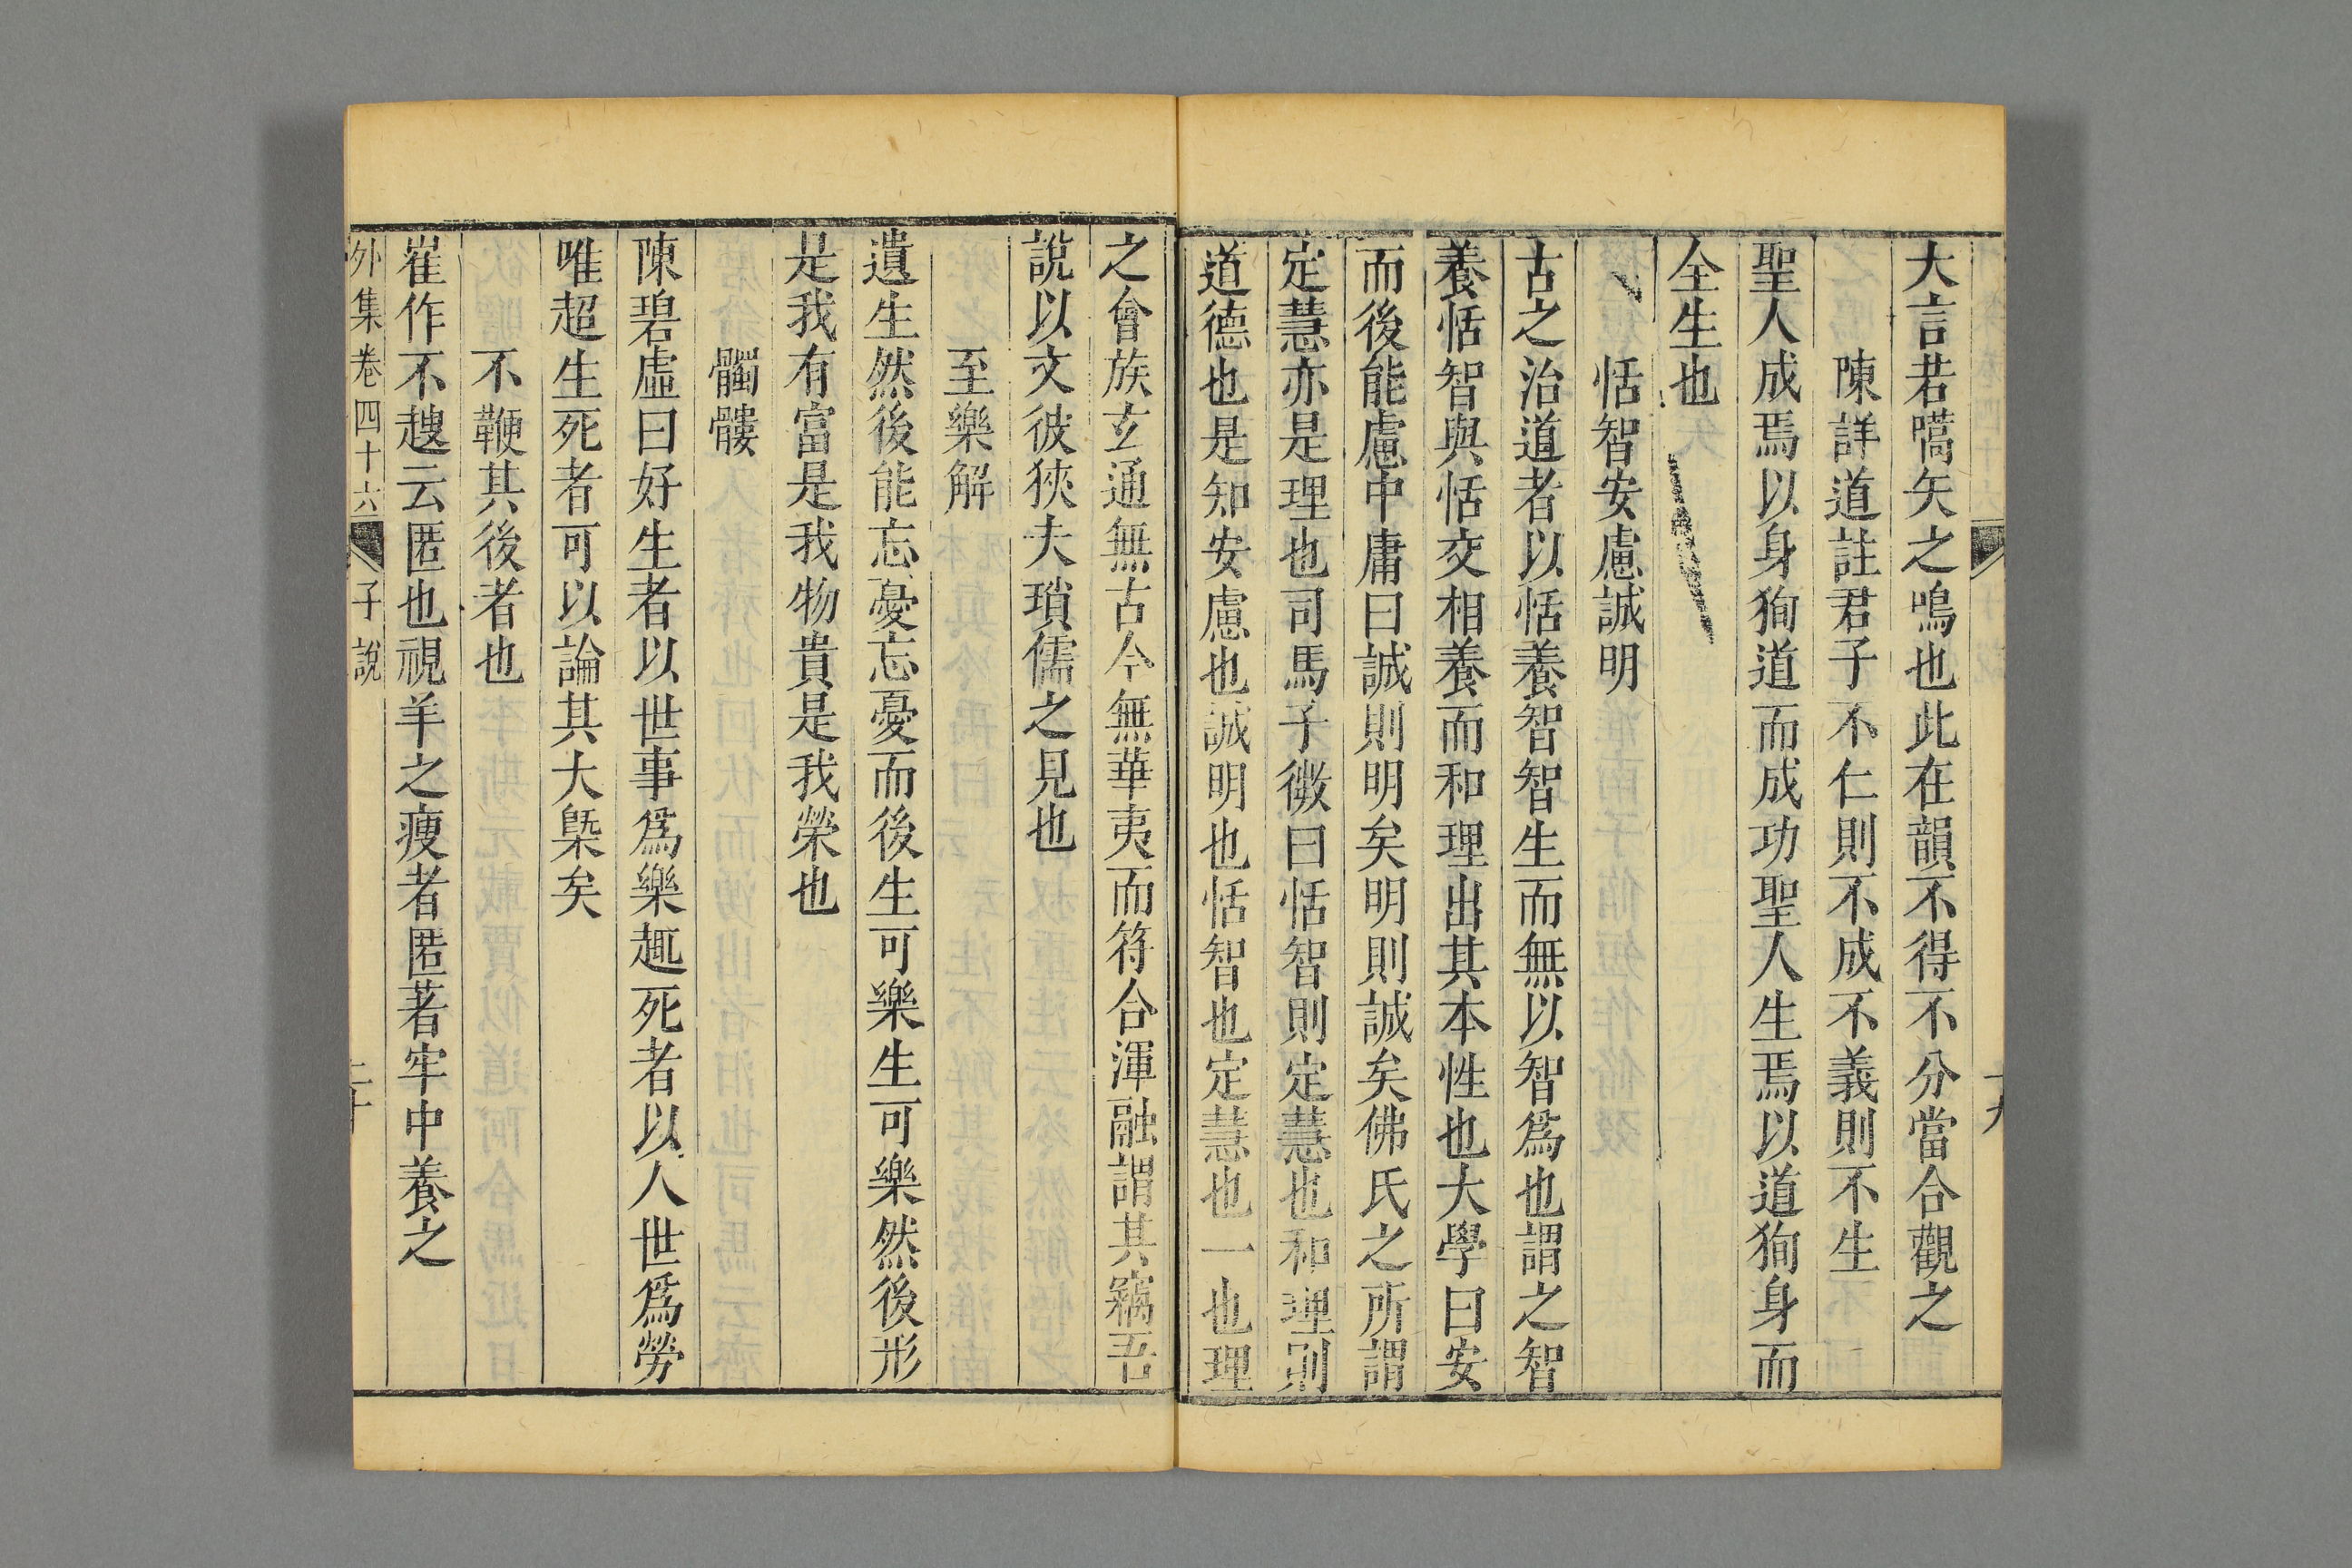 大言若嚆矢之鳴也此在韻不得不分當合觀之
陳詳道註君子不仁則不成不義則不生
聖人成焉以身狥道而成功聖人生焉以道狥身而
全生也
恬智安慮誠明
古之治道者以恬養智智生而無以智爲也謂之智
養恬智與恬交相養而和理出其本性也大學曰安
而後能慮中庸曰誠則明矣明則誠矣佛氏之所謂
定慧亦是理也司馬子微曰恬智則定慧也和理則
道德也是知安慮也誠明也恬智也定慧也一也理
十九
之會族玄通無古今無華夷而符合渾融謂其竊吾
說以文彼狹夫瑣儒之見也
至樂解
遺生然後能忘憂忘憂而後生可樂生可樂然後形
是我有富是我物貴是我榮也
髑髏
陳碧虛曰好生者以世事爲樂趣死者以人世爲勞
唯超生死者可以論其大槩矣
不鞭其後者也
崔作不趮云匿也視羊之瘦者匿著牢中養之
外集卷四十六 子說 二十